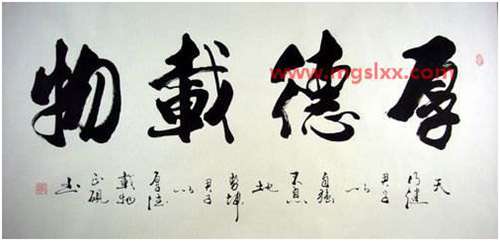 厚德載物
www.mgslxx.com
天
行健
君子
以
自强
不息
地
勢坤
君子
以
厚德
載物
书